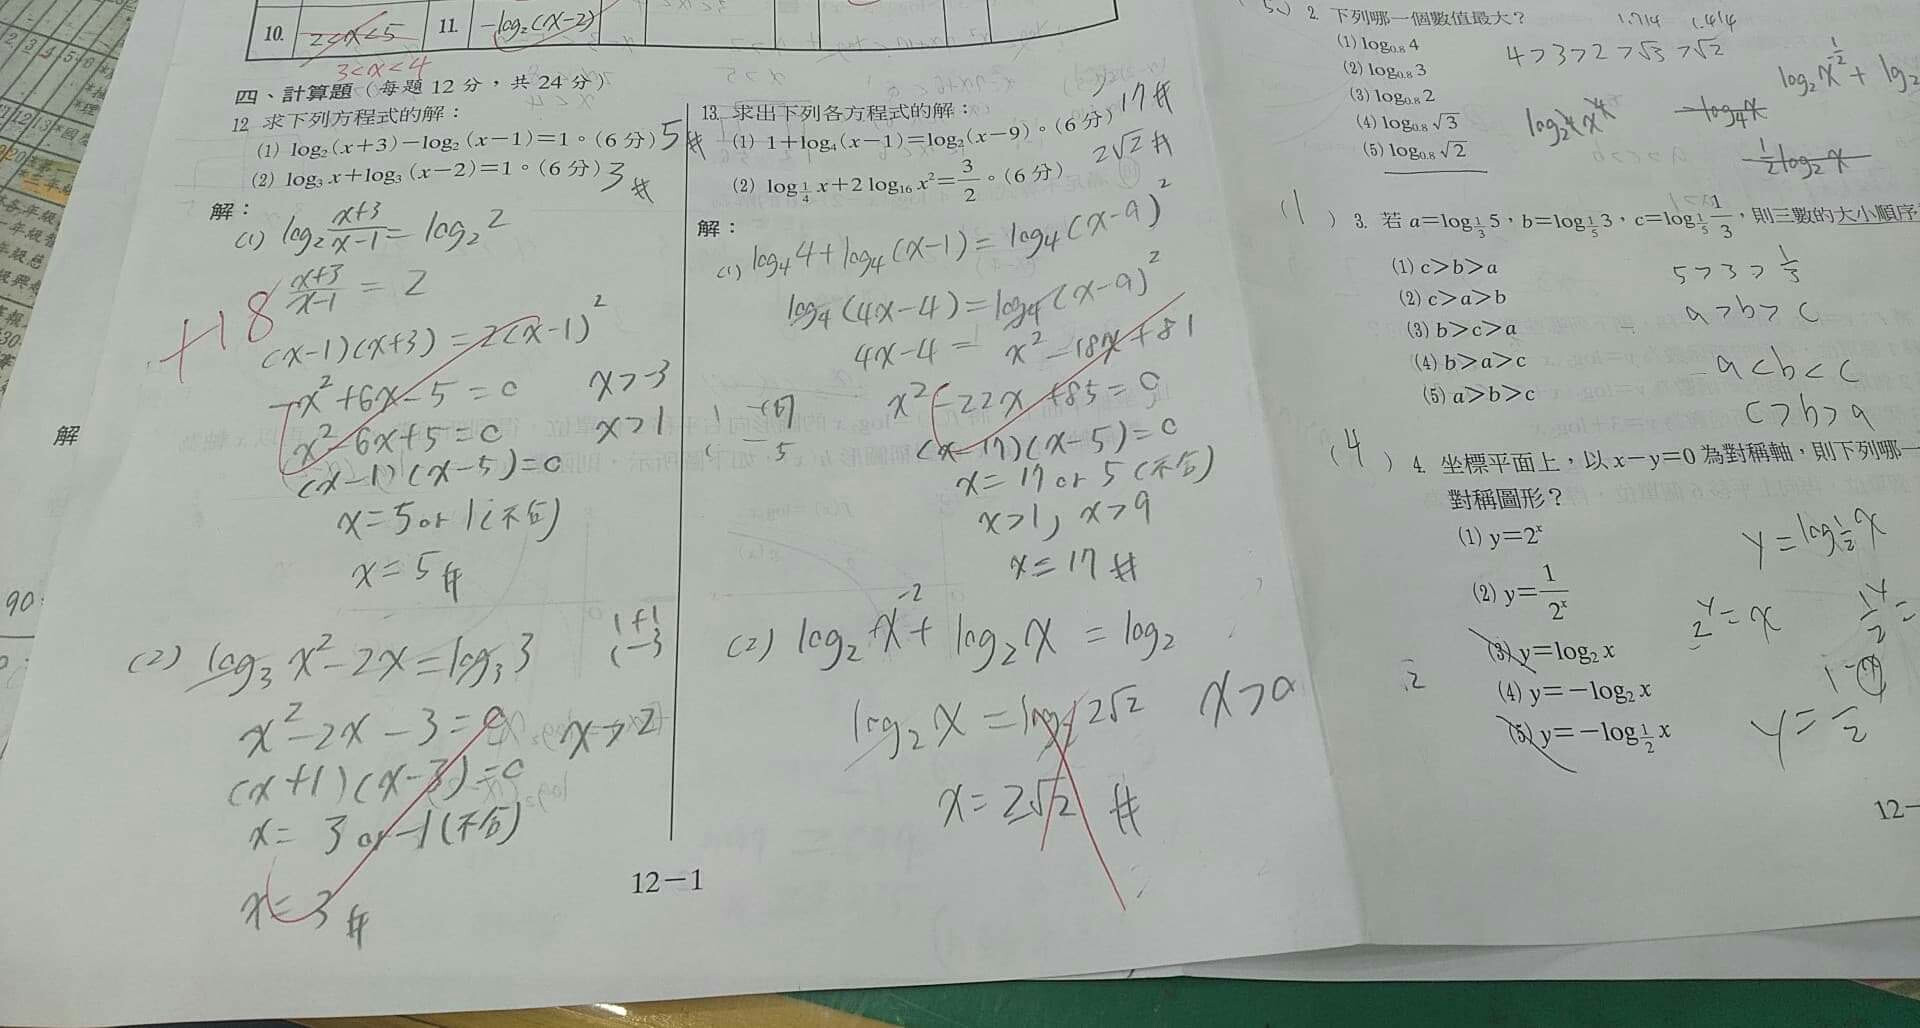 10. 2<x<5 11. -log₂(x-2)
3<x<4
四、計算題(每題12分,共24分)
12. 求下列方程式的解:
(1) log₂(x+3)-log₂(x-1)=1。(6分) 5 #
(2) log₃x+log₃(x-2)=1。(6分) 3 #
解:
(1) log₂ (x+3)/(x-1) = log₂2
(x+3)/(x-1) = 2
+18
(x-1)(x+3) = 2(x-1)²
-x²+6x-5=0 x>-3
x²-6x+5=0 x>1
(x-1)(x-5)=0
x=5 or 1(不合)
x=5 #
(2) log₃x²-2x=log₃3
1 +1
1 -3
x²-2x-3=0 x>2
(x+1)(x-3)=0
x= 3 or -1(不合)
x=3 #
13. 求出下列各方程式的解:
(1) 1+log₄(x-1)=log₂(x-9)。(6分) 17 #
(2) log_{1/4} x+2log₁₆x²=3/2。(6分) 2√2 #
解:
(1) log₄4+log₄(x-1)=log₄(x-9)²
log₄(4x-4)=log₄(x-9)²
4x-4= x²-18x+81
x²-22x+85=0
1 -17
1 -5
(x-17)(x-5)=0
x=17 or 5(不合)
x>1, x>9
x=17 #
(2) log₂x⁻²+log₂x=log₂
log₂x=log₂2√2 x>0
x=2√2 #
12-1
解
90
2. 下列哪一個數值最大? 1.714 1.414
(1) log₀.₈4
(2) log₀.₈3
(3) log₀.₈2
(4) log₀.₈√3
(5) log₀.₈√2
4>3>2>√3>√2
-log₄x
-1/2log₂x
(1) 3. 若a=log_{1/3}5,b=log_{1/5}3,c=log_{1/5}1/3,則三數的大小順序
(1) c>b>a
(2) c>a>b
(3) b>c>a
(4) b>a>c
(5) a>b>c
5>3>1/3
a>b>c
a<b<c
c>b>a
(4) 4. 坐標平面上,以x-y=0為對稱軸,則下列哪一
對稱圖形?
(1) y=2ˣ
(2) y=1/2ˣ
(3) y=log₂x
(4) y=-log₂x
(5) y=-log_{1/2}x
y=log_{1/2}x
2ʸ=x
12-